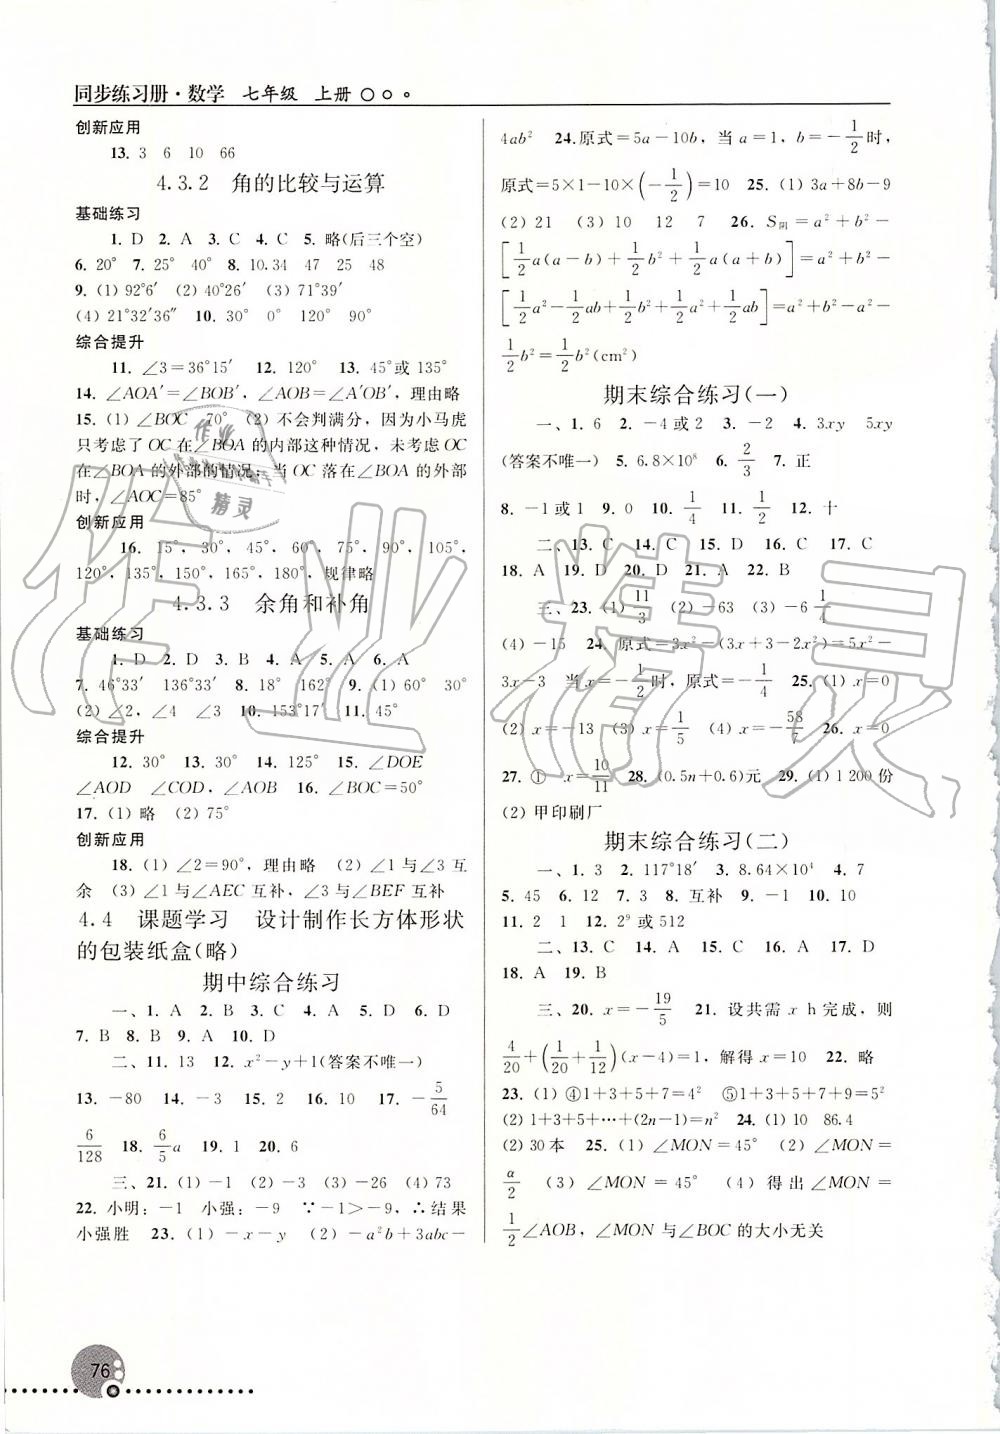 同步练习册·数学 七年级 上册
创新应用
13. 3 6 10 66
4.3.2 角的比较与运算
基础练习
1. D 2. A 3. C 4. C 5. 略(后三个空)
6. 20° 7. 25° 40° 8. 10.34 47 25 48
9. (1) 92°6′ (2) 40°26′ (3) 71°39′
(4) 21°32′36″ 10. 30° 0° 120° 90°
综合提升
11. ∠3=36°15′ 12. 120° 13. 45°或 135°
14. ∠AOA′=∠BOB′,∠AOB=∠A′OB′,理由略
15. (1) ∠BOC 70° (2) 不会判满分,因为小马虎
只考虑了 OC 在∠BOA 的内部这种情况,未考虑 OC
在∠BOA 的外部的情况;当 OC 落在∠BOA 的外部
时,∠AOC=85°
创新应用
16. 15°,30°,45°,60°,75°,90°,105°,
120°,135°,150°,165°,180°,规律略
4.3.3 余角和补角
基础练习
1. D 2. D 3. B 4. A 5. A 6. A
7. 46°33′ 136°33′ 8. 18° 162° 9. (1) 60° 30°
(2) ∠2,∠4 ∠3 10. 153°17′ 11. 45°
综合提升
12. 30° 13. 30° 14. 125° 15. ∠DOE
∠AOD ∠COD,∠AOB 16. ∠BOC=50°
17. (1) 略 (2) 75°
创新应用
18. (1) ∠2=90°,理由略 (2) ∠1 与∠3 互
余 (3) ∠1 与∠AEC 互补,∠3 与∠BEF 互补
4.4 课题学习 设计制作长方体形状
的包装纸盒(略)
期中综合练习
一、1. A 2. B 3. C 4. A 5. D 6. D
7. B 8. B 9. A 10. D
二、11. 13 12. x²-y+1(答案不唯一)
13. -80 14. -3 15. 2 16. 10 17. -5/64
6/128 18. 6/5 a 19. 1 20. 6
三、21. (1) -1 (2) -3 (3) -26 (4) 73
22. 小明:-1 小强:-9 ∵-1>-9,∴结果
小强胜 23. (1) -x-y (2) -a²b+3abc-
4ab² 24. 原式=5a-10b,当 a=1,b=-1/2时,
原式=5×1-10×(-1/2)=10 25. (1) 3a+8b-9
(2) 21 (3) 10 12 7 26. S阴=a²+b²-
[1/2a(a-b)+1/2b²+1/2a(a+b)]=a²+b²-
[1/2a²-1/2ab+1/2b²+1/2a²+1/2ab]=a²+b²-a²-
1/2b²=1/2b²(cm²)
期末综合练习(一)
一、1. 6 2. -4 或 2 3. -2 4. 3xy 5xy
(答案不唯一) 5. 6.8×10⁸ 6. 2/3 7. 正
8. -1 或 1 9. 0 10. 1/4 11. 1/2 12. 十
二、13. C 14. C 15. D 16. C 17. C
18. A 19. D 20. D 21. A 22. B
三、23. (1) 11/3 (2) -63 (3) -6 1/4
(4) -15 24. 原式=3x²-(3x+3-2x²)=5x²-
3x-3 当 x=-1/2时,原式=-1/4 25. (1) x=0
(2) x=-13 (3) x=1/5 (4) x=-58/7 26. x=0
27. ① x=10/11 28. (0.5n+0.6)元 29. (1) 1 200 份
(2) 甲印刷厂
期末综合练习(二)
一、1. 3 2. 117°18′ 3. 8.64×10⁴ 4. 7
5. 45 6. 12 7. 3 8. 互补 9. -1 10. 0
11. 2 1 12. 2⁹ 或 512
二、13. C 14. A 15. C 16. A 17. D
18. A 19. B
三、20. x=-19/5 21. 设共需 x h 完成,则
4/20+(1/20+1/12)(x-4)=1,解得 x=10 22. 略
23. (1) ④1+3+5+7=4² ⑤1+3+5+7+9=5²
(2) 1+3+5+…+(2n-1)=n² 24. (1) 10 86.4
(2) 30 本 25. (1) ∠MON=45° (2) ∠MON=
α/2 (3) ∠MON=45° (4) 得出∠MON=
1/2∠AOB,∠MON 与∠BOC 的大小无关
76
作业精灵
作业
精灵